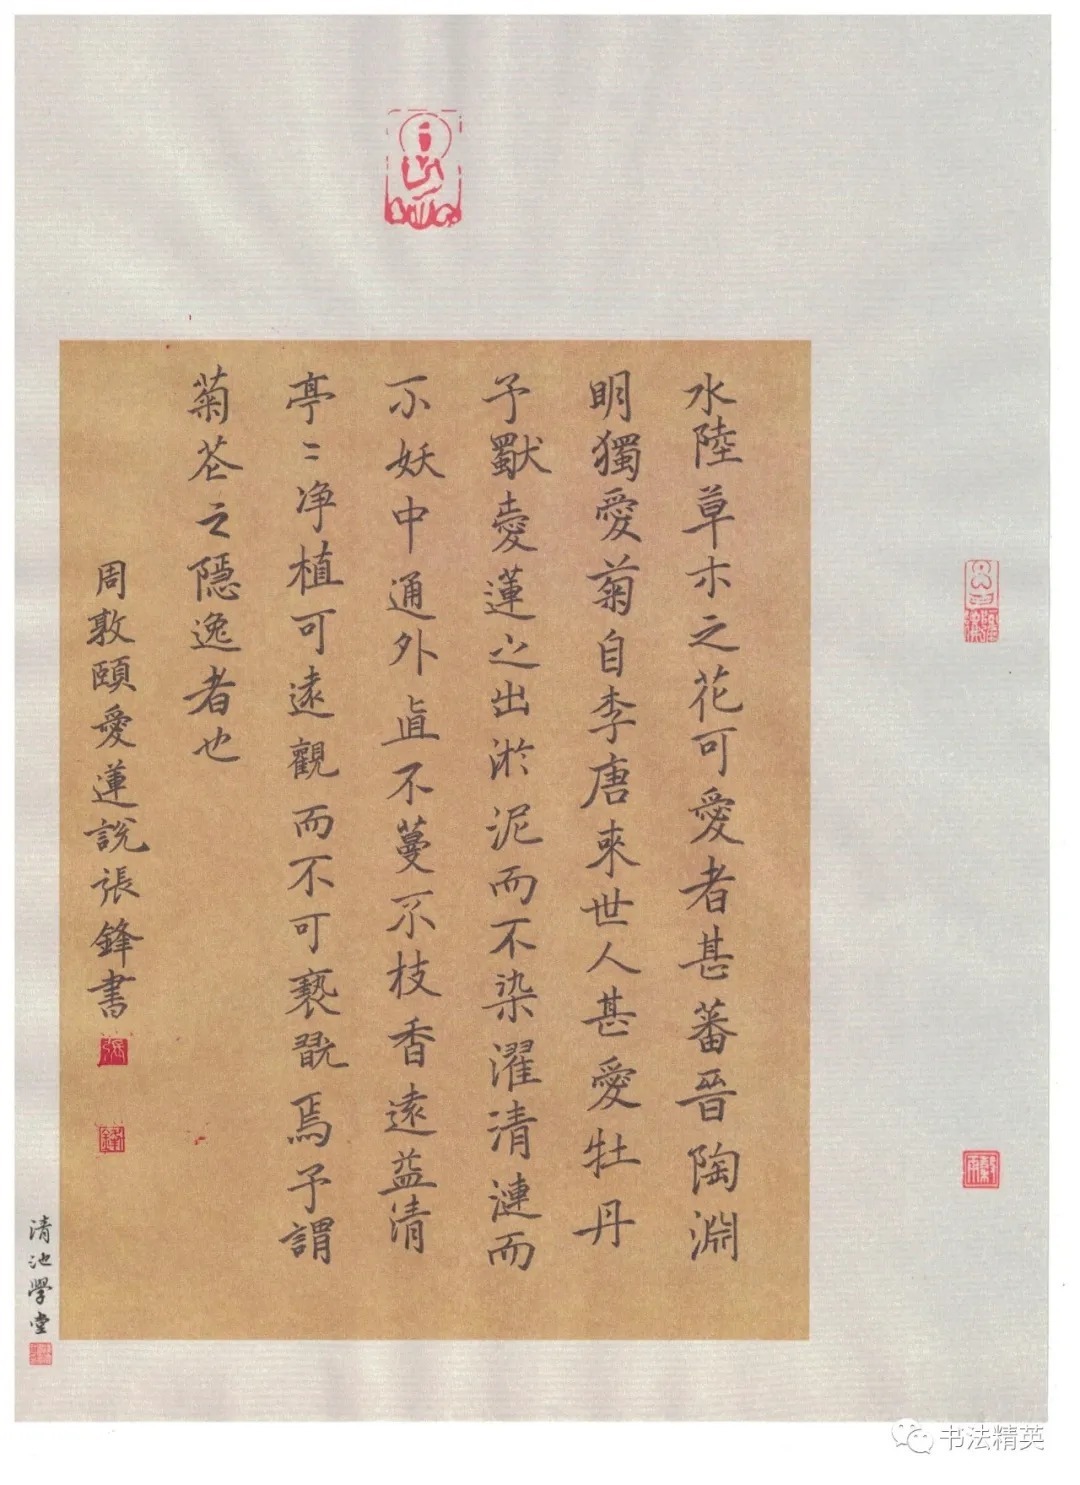 水陸草木之花可愛者甚蕃晉陶淵
明獨愛菊自李唐來世人甚愛牡丹
予獨愛蓮之出淤泥而不染濯清漣而
不妖中通外直不蔓不枝香遠益清
亭〻净植可遠觀而不可褻翫焉予謂
菊花之隱逸者也
周敦頤愛蓮說張鋒書
張
鋒
清池學堂
书法精英